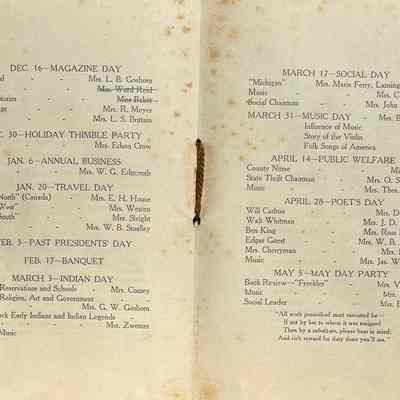 DEC. 16—MAGAZINE DAY
Mrs. L. B. Goshorn
Mrs. Ward Reid
Mrs. Baker
Mrs. R. Meyer
Mrs. L. S. Brittain
30—HOLIDAY THIMBLE PARTY
Mrs. Edson Crow
JAN. 6—ANNUAL BUSINESS
Mrs. W. G. Edgcomb
JAN. 20—TRAVEL DAY
North" (Canada) - Mrs. E. H. House
West" - - Mrs. Weston
South" - - Mrs. Sleight
Mrs. W. B. Smalley
3—PAST PRESIDENTS' DAY
FEB. 17—BANQUET
MARCH 3—INDIAN DAY
Reservations and Schools - Mrs. Cooney
Religion, Art and Government
Mrs. G. W. Goshorn
Early Indians and Indian Legends -
Mrs. Zwemer
Music
MARCH 17—SOCIAL DAY
"Michigan" - Mrs. Marie Ferry, Lansing
Music - - Mrs.
Social Chairman - Mrs. John
MARCH 31—MUSIC DAY - Mrs.
Influence of Music
Story of the Violin
Folk Songs of America
APRIL 14—PUBLIC WELFARE
County Nurse - Mrs.
State Thrift Chairman - Mrs. O. S.
Music - - Mrs. Thos.
APRIL 28—POET'S DAY
Will Carlton - - Mrs. D.
Walt Whitman - - Mrs. J. D.
Ben King - - Mrs. Ross
Edgar Guest - - Mrs. W. B.
Mrs. Cherryman - - Mrs.
Music - - Mrs. Jas. W.
MAY 5—MAY DAY PARTY
Book Review—"Freckles" - Mrs. V.
Music - - Mrs.
Social Leader - - Mrs.
"All work prescribed must executed be—
If not by her to whom it was assigned
Then by a substitute, please bear in mind;
And rich reward for duty done you'll see."